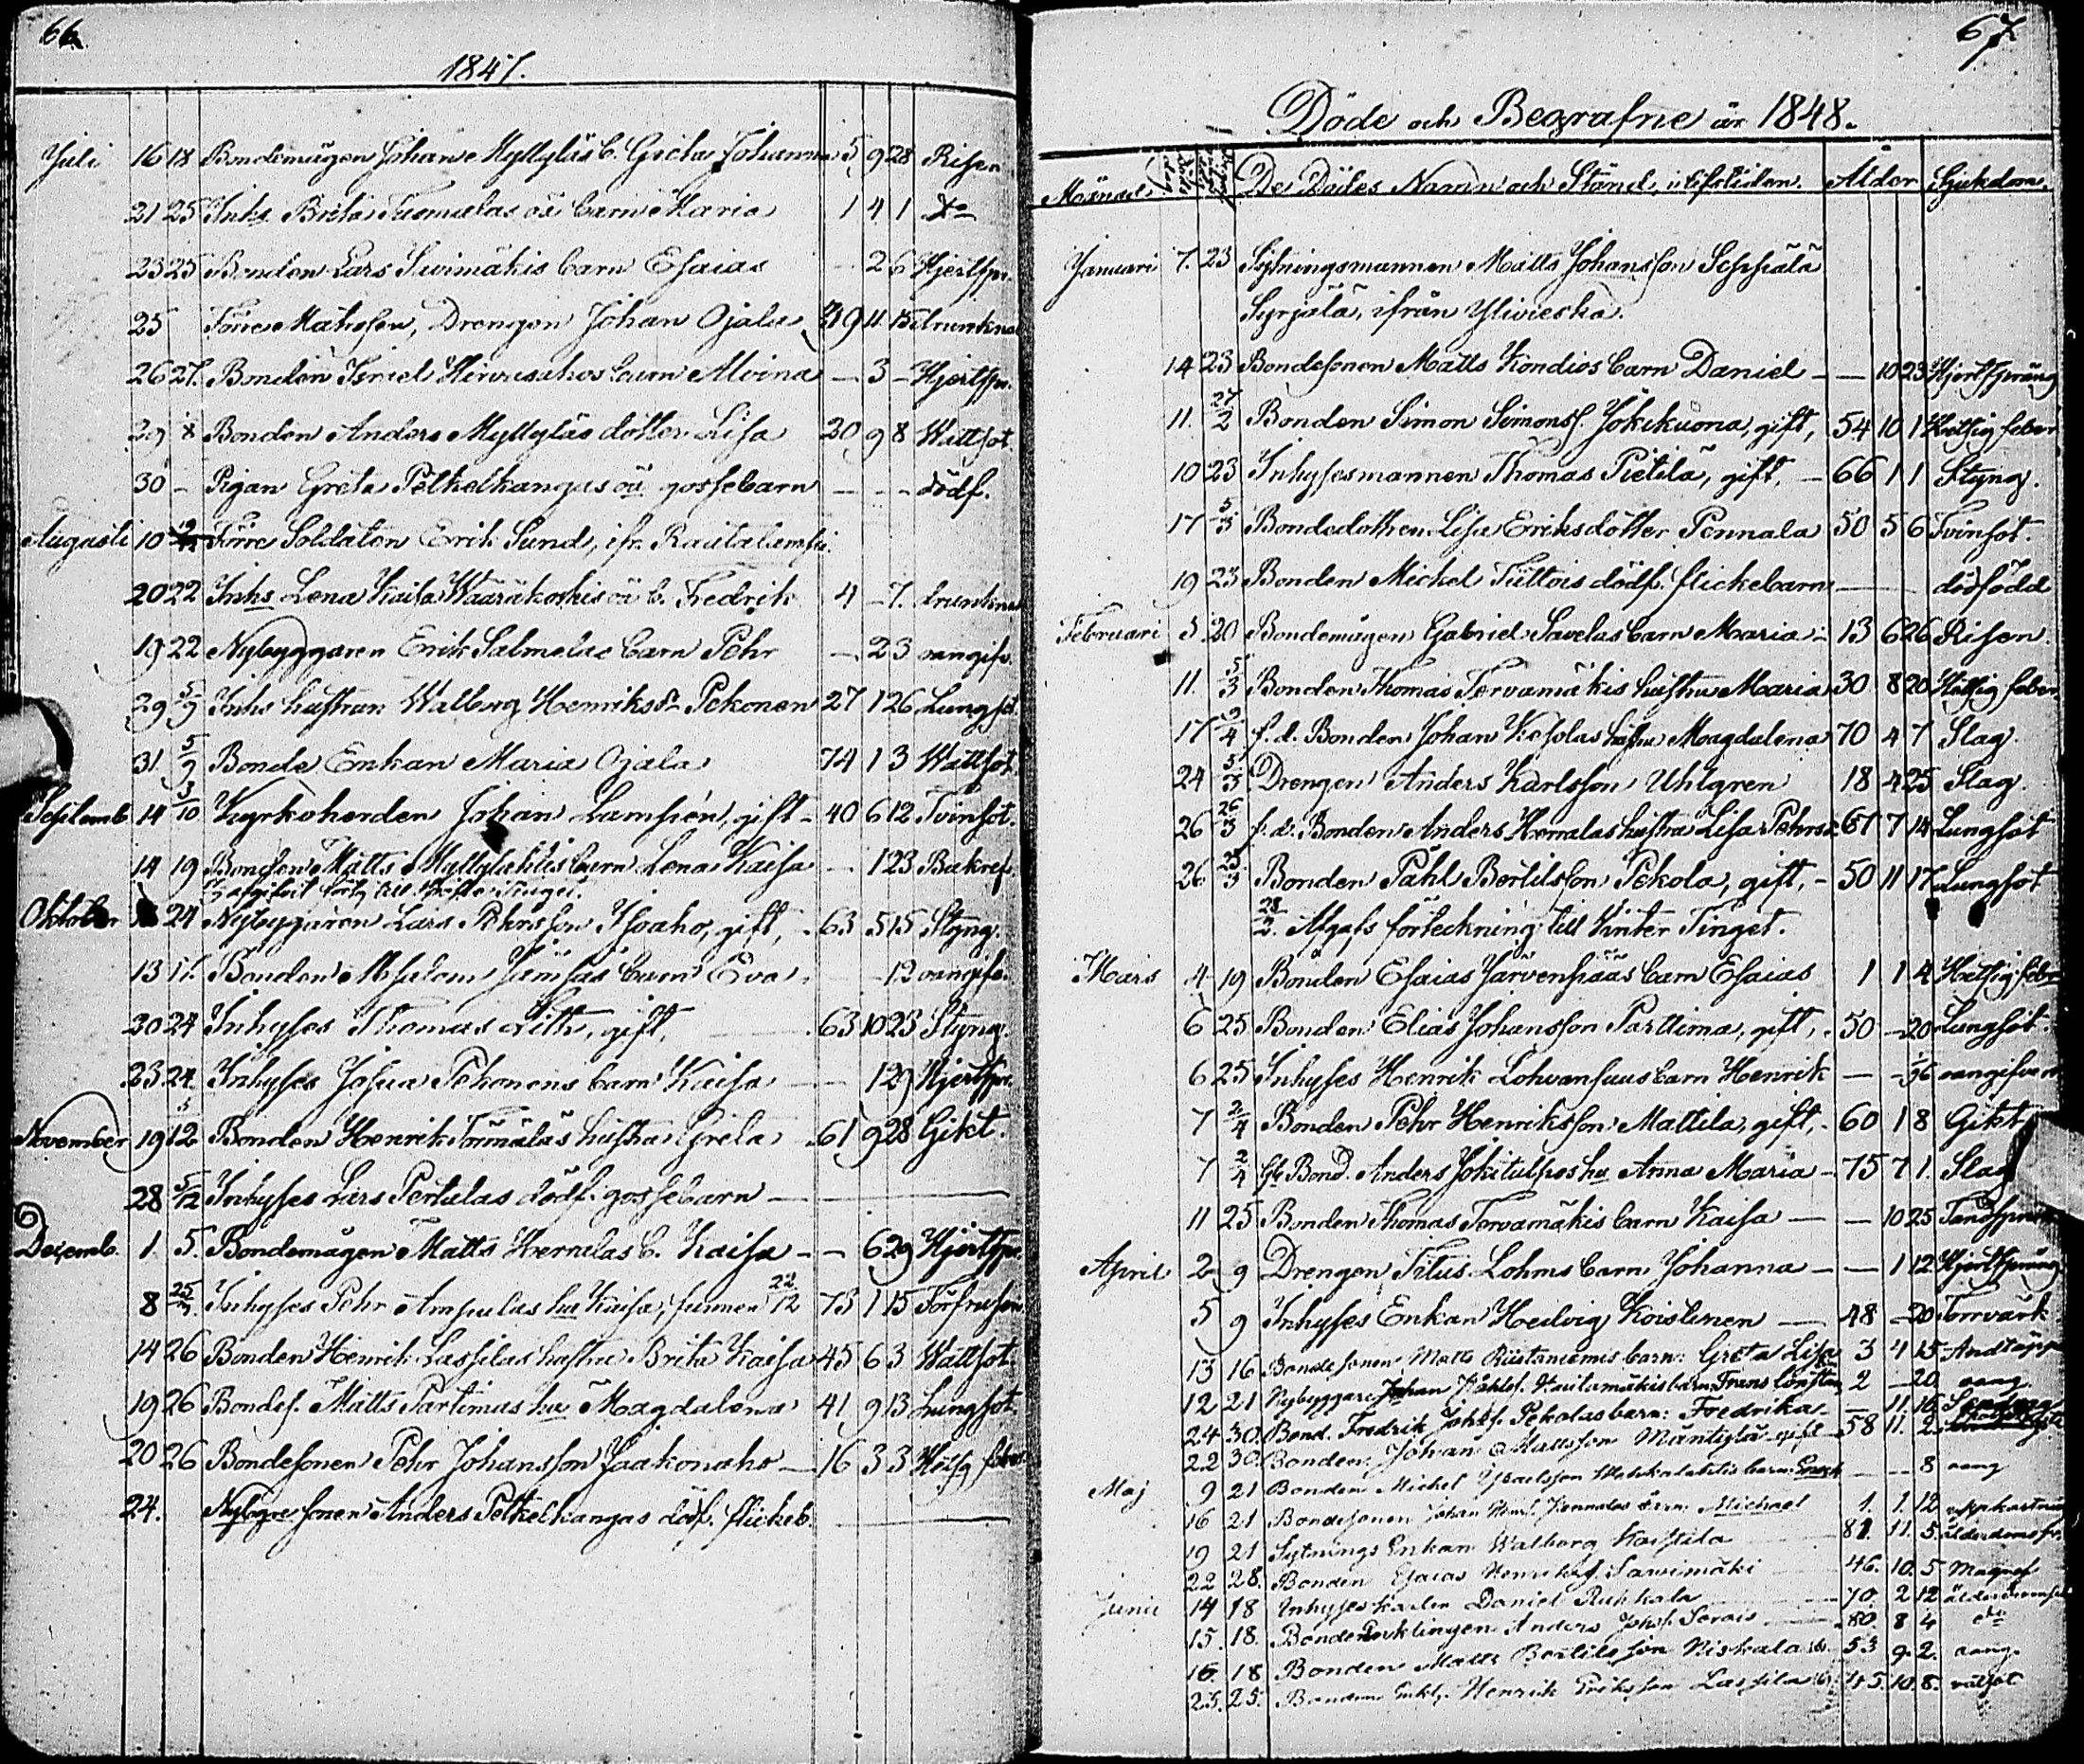 66.
1847.
Juli 16 18 Bondemågen Johan Myllyläs b. Greta Johanna 5 9 28 Risen
21 25 Inhs Brita Tuomalas oä barn Maria 1 4 1 Do
23 25 Bonden Lars Suimäkis barn Esaias - 2 6 Hjertspr.
25 Förre Matrosen, Drengen Johan Ojala 39 11 15 drunknad
26 27. Bonden Isriel Hirvisahos barn Alvina — 3 - Hjertspr.
29 Bonden Anders Myllyläs dotter Lisa 20 9 8 Wattsot.
30 - Pigan Greta Pelkelkangas oä gossebarn — - - dödf.
Augusti 10 Förre Soldaten Erik Sund, ifr. Rautalampi.
20 22 Inhs Lena Kaisa Waaräkoskis oä b. Fredrik 4 - 7. drunknad
19 22 Nybyggaren Erik Salmelas barn Pehr — 23 oangifv.
29 5/9 Inhs hustrun Walborg Henriksdr Pekonen 27 1 26 Lungsot
31 5/9 Bonde Enkan Maria Ojala 74 1 3 Wattsot
Septemb. 14 3/10 Kyrkoherden Johan Lampén, gift - 40 6 12 Tvinsot.
14 19 Bonden Matts Myllylahtis barn Lena Kaisa — 1 23 Bakref.
afgifvit förtg till Höste Tinget.
Oktober 24 Nybyggaren Lars Pehrsson Isoaho, gift, - 63 5 15 Styng.
13 17. Bonden Absalom Jämsäs barn Eva - 12 oangifv.
20 24 Inhyses Thomas Lith, gift, 63 10 23 Styng.
23 24. Inhyses Josua Pekonens barn Kaisa — 1 29 Hjertspr.
November 19 5/12 Bonden Henrik Törmäläs hustru Greta 61 9 28 Gikt.
28 5/12 Inhyses Lars Pertulas dödf. gossebarn —
Decemb. 1. 5. Bondemågen Matts Hernalas b. Kaisa - — 6 29 Hjertspr.
8 25 Inhyses Pehr Ampulas hu Kaisa, funnen 22/12 73 1 15 Förfrusen
14 26 Bonden Henrik Lassilas hustru Brita Kaisa 45 6 3 Wattsot.
19 26 Bondes. Matts Partimas hu Magdalena 41 9 13 Lungsot.
20 26 Bondesonen Pehr Johansson Jaakonaho — 16 3 3 Hetsg feber
24. Nybygre sonen Anders Pelkelkangas dödf. flickeb.
67.
Döde och Begrafne år 1848.
Månad Död dag De Dödes Namn och Stånd, utifrån. Ålder Sjukdom.
Januari 7. 23 Sytningsmannen Matts Johansson Seppälä
Syrjälä, ifrån Ylivieska.
14 23 Bondesonen Matts Kondios barn Daniel — — 10 23 Hjertsprång
11. 27/2 Bonden Simon Simonss. Jokikuona, gift, 54 10 1 Hetsig feber
10 23 Inhysesmannen Thomas Pietilä, gift, - 66 1 1 Styng.
17 5/3 Bondedottren Lisa Eriksdotter Pennala 50 5 6 Tvinsot.
19 23 Bonden Michel Tiittois dödf. flickebarn — — dödfödd
Februari 5 20 Bondemågen Gabriel Savelas barn Maria - 13 6 26 Risen.
11. 5/3 Bonden Thomas Tervamäkis hustru Maria 30 8 20 Hetsig feber
17 9/4 f.d. Bonden Johan Kesolas hustru Magdalena 70 4 7 Slag.
24 5/3 Drengen Anders Karlsson Uhlgren 18 4 25 Slag.
26 26/3 f.d. Bonden Anders Hernalas hustru Lisa Pehrsdr 67 7 14 Lungsot
26. 25/3 Bonden Påhl Bertilsson Pekola, gift, - 50 11 17 Lungsot
28/2. Afgafs förteckning till Vinter Tinget.
Mars 4 19 Bonden Esaias Järvenpääs barn Esaias 1 1 4 Hetsig feber
6 25 Bonden Elias Johansson Parttima, gift, - 50 — 20 Lungsot.
6 25 Inhyses Henrik Lohvansuus barn Henrik — — 36 oangifven
7 2/4 Bonden Pehr Henriksson Mattila, gift, - 60 1 8 Gikt
7 2/4 Bond. Anders Jokitulppos hu Anna Maria - 75 7 1. Slag
11 25 Bonden Thomas Tervamäkis barn Kaisa — — 10 25 Tandsprickn.
April 2 9 Drengen Titus Lohms barn Johanna — — 1 12 Hjertsprång
5 9 Inhyses Enkan Hedvig Koistinen — 48 — 20 Torrvärk
13 16 Bondesonen Matts Riistaniemis barn: Greta Lisa 3 4 15 Andtäppa
12 21 Nybyggare Johan Påhlss. Rautamäkis barn Frans Constan. 2 — 20 oang.
24 30. Bond. Fredrik Johss. Pekolas barn: Fredrika — 11. 16
22 30 Bonden: Johan Mattsson Mäntylä gift 58 11. 2
Maj 9 21 Bonden Michel barn: — — 8 oang
16 21 Bondesonen Johan Henr. Pennalas barn: Michael 1. 1. 12
19 21 Sytnings Enkan Walborg 81. 11. 5 ålderdomsbr.
22 28. Bonden Esaias Henrikss. Sarvimäki 46. 10. 5 Magref
Junii 14 18 Inhyses karlen Daniel Ruhkala 70 2 12 ålderdomsbr.
15. 18. Bonde Enklingen Anders Johs. 80 8 4 do
16. 18 Bonden Matts Bertilsson Niskala 53 9. 2. oang.
23. 25. Bonden Enkl. Henrik Eriksson Lassila 45. 10. 8. vatsot